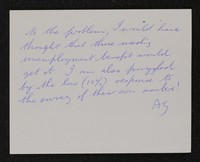 As the problem, I would have
thought that those needing
unemployment benefit would
get it. I am also puzzled
by the low (10%) response to
the survey of their own
A G